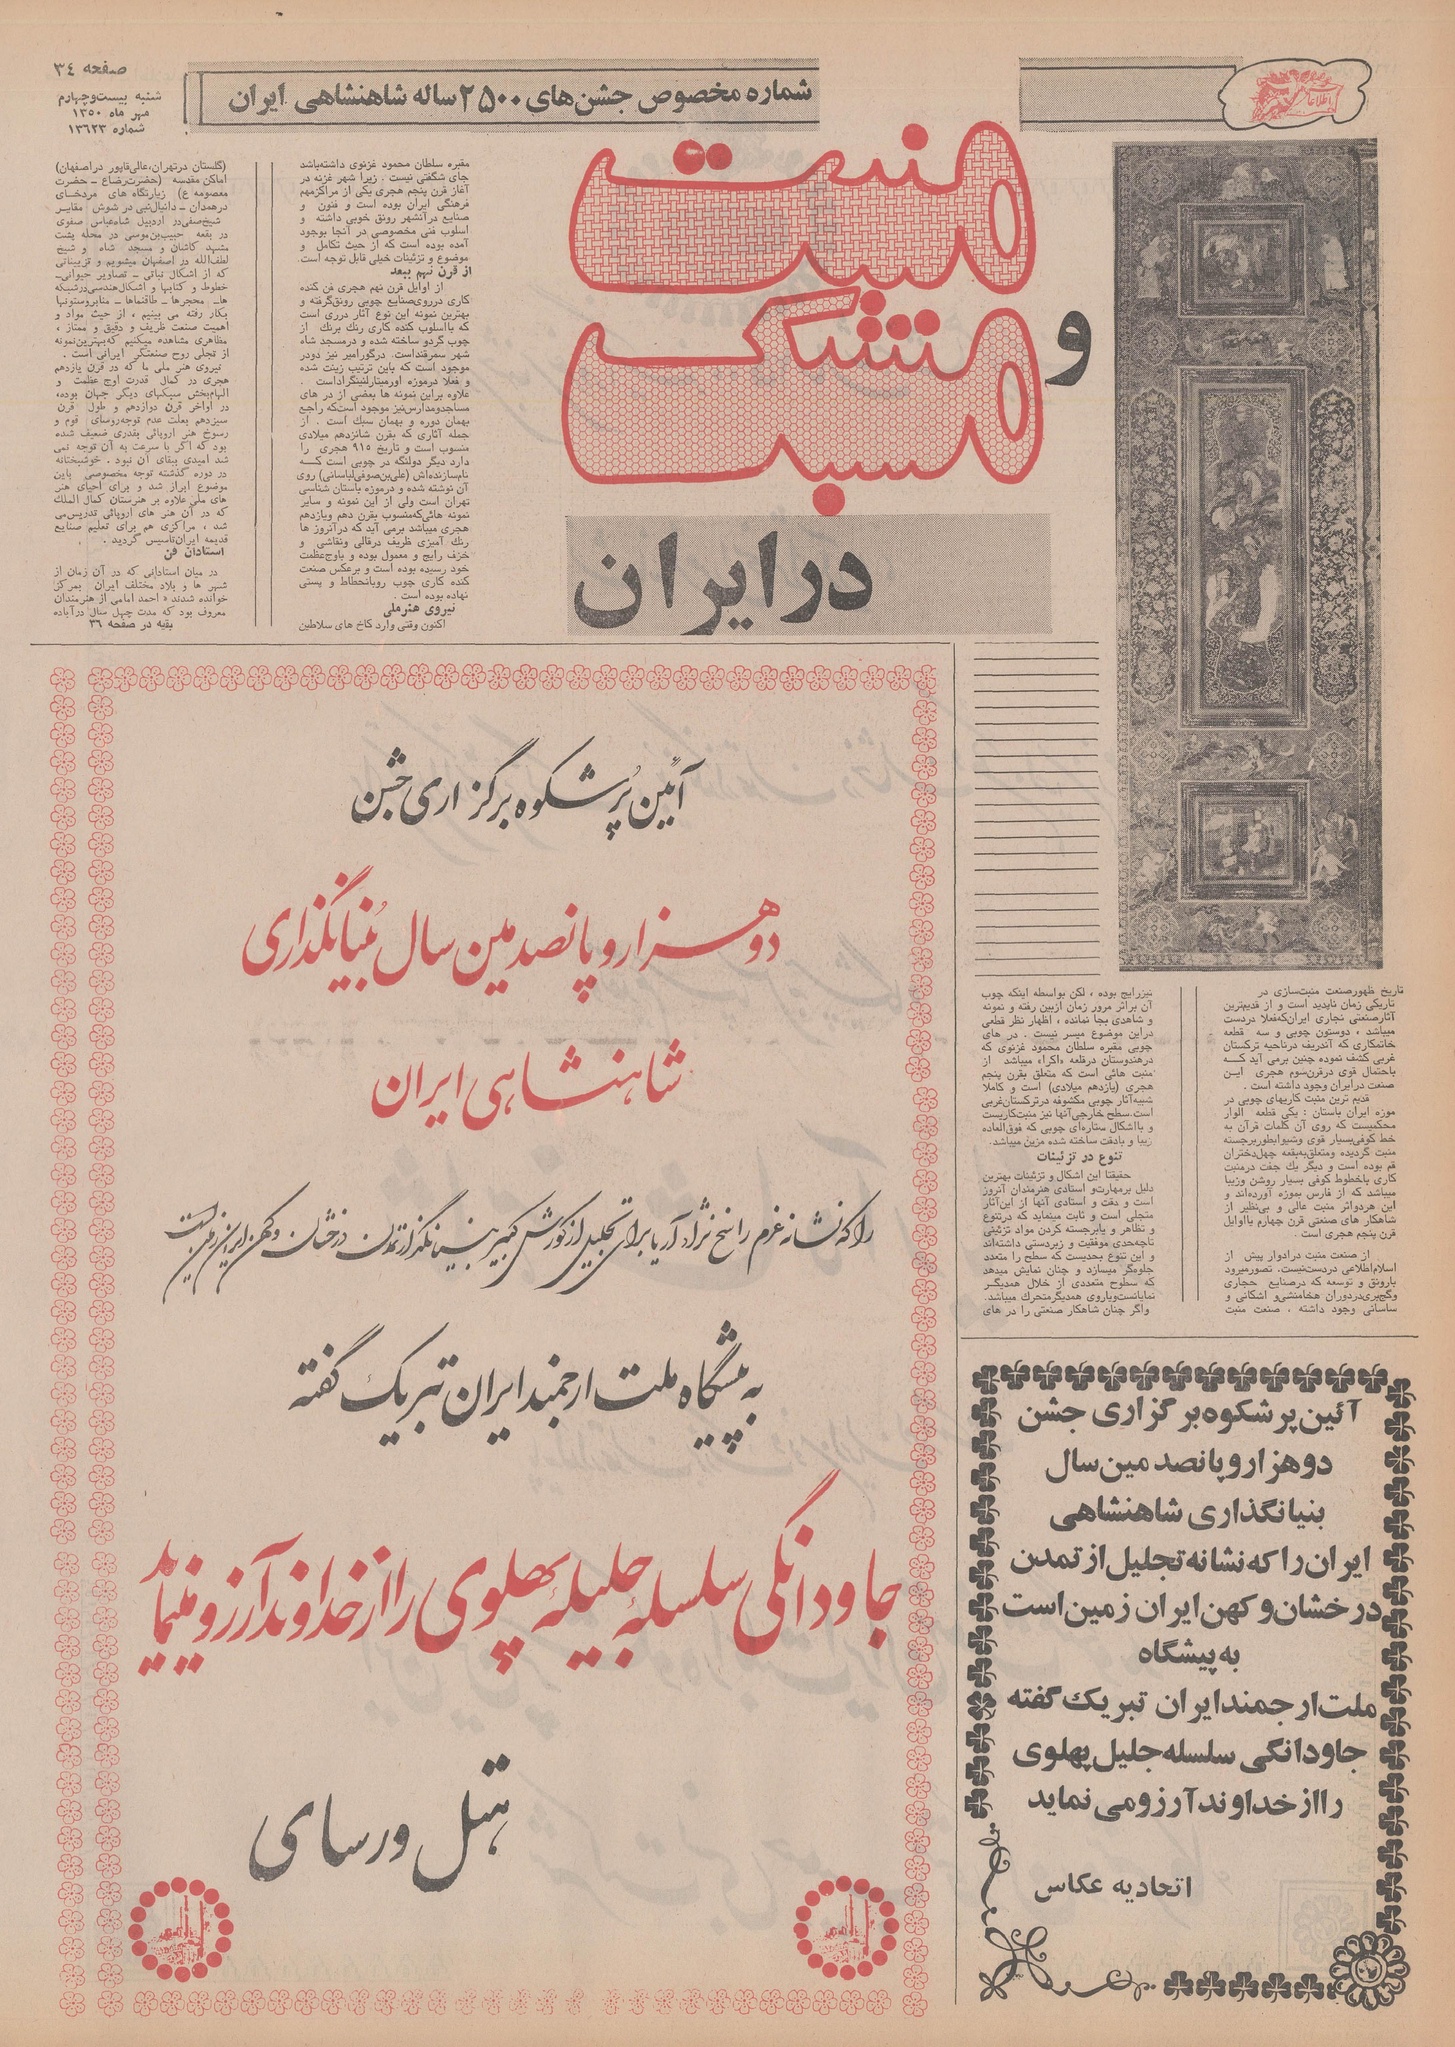 صفحه ٣٤
شنبه بیست‌وچهارم
مهر ماه ۱۳۵۰
شماره ۱۳٦۲۳
شماره مخصوص جشن‌های ۲۵۰۰ ساله شاهنشاهی ایران
اطلاعات
منبت
و
مشبک
در ایران
تاریخ ظهور صنعت منبت‌سازی در
تاریکی زمان ناپدید است و از قدیم‌ترین
آثار صنعتی نجاری ایران که فعلا در دست
میباشد ، دوستون چوبی و سه قطعه
خاتمکاری که آندریف در ناحیه ترکستان
غربی کشف نموده چنین برمی آید کـه
باحتمال قوی در قرن سوم هجری ایـن
صنعت در ایران وجود داشته است .
قدیم ترین منبت کاریهای چوبی در
موزه ایران باستان : یکی قطعه الوار
محکمیست که روی آن کلمات قرآن به
خط کوفی بسیار قوی وشیوا بطور برجسته
منبت گردیده ومتعلق به بقعه چهل‌دختران
قم بوده است و دیگر یك جفت درمنبت
کاری باخطوط کوفی بسیار روشن وزیبا
میباشد که از فارس بموزه آورده‌اند و
این هردواثر منبت عالی و بی‌نظیر از
شاهکار های صنعتی قرن چهارم یااوایل
قرن پنجم هجری است .
از صنعت منبت درادوار پیش از
اسلام اطلاعی دردست نیست. تصور میرود
بارونق و توسعه که درصنایع حجاری
وگچبری در دوران هخامنشی و اشکانی و
ساسانی وجود داشته ، صنعت منبت
نیز رایج بوده ، لکن بواسطه اینکه چوب
آن براثر مرور زمان ازبین رفته و نمونه
و شاهدی بجا نمانده ، اظهار نظر قطعی
دراین موضوع میسر نیست . در های
چوبی مقبره سلطان محمود غزنوی که
درهندوستان درقلعه «اکرا» میباشد از
منبت هائی است که متعلق بقرن پنجم
هجری (یازدهم میلادی) است و کاملا
شبیه آثار چوبی مکشوفه در ترکستان غربی
است. سطح خارجی آنها نیز منبت‌کاریست
و بااشکال ستاره‌ای چوبی که فوق‌العاده
زیبا و بادقت ساخته شده مزین میباشد.
تنوع در تزئینات
حقیقتا این اشکال و تزئینات بهترین
دلیل بر مهارت و استادی هنرمندان آنروز
است و دقت و استادی آنها از این آثار
متجلی است و ثابت مینماید که درتنوع
و تظاهر و یا برجسته کردن مواد تزئینی
تاچه‌حدی موفقیت و زبردستی داشته‌اند
و این تنوع بحدیست که سطح را متعدد
جلوه‌گر میسازد و چنان نمایش میدهد
که سطوح متعددی از خلال همدیگـر
نمایانست و یاروی همدیگر متحرك میباشد.
واگر چنان شاهکار صنعتی را در های
مقبره سلطان محمود غزنوی داشته باشد
جای شگفتی نیست . زیرا شهر غزنه در
آغاز قرن پنجم هجری یکی از مراکز مهم
فرهنگی ایران بوده است و فنون و
صنایع در آنشهر رونق خوبی داشته و
اسلوب فنی مخصوصی در آنجا بوجود
آمده بوده است که از حیث تکامل و
موضوع و تزئینات خیلی قابل توجه است.
از قرن نهم ببعد
از اوایل قرن نهم هجری فن کنده
کاری در روی صنایع چوبی رونق گرفته و
بهترین نمونه این نوع آثار دری است
که بااسلوب کنده کاری رنك برنك از
چوب گردو ساخته شده و درمسجد شاه
شهر سمرقند است. در گور امیر نیز دو در
موجود است که باین ترتیب زینت شده
و فعلا درموزه ارمیتاژ لنینگراد است .
علاوه براین نمونه ها بعضی از در های
مساجد و مدارس نیز موجود است که راجع
بهمان دوره و بهمان سبك است . از
جمله آثاری که بقرن شانزدهم میلادی
منسوب است و تاریخ ۹۱۵ هجری را
دارد دیگر دولنگه در چوبی است کــه
نام سازنده‌اش (علی بن صوفی لباسانی) روی
آن نوشته شده و درموزه باستان شناسی
تهران است ولی از این نمونه و سایر
نمونه هائی که منسوب بقرن دهم ویازدهم
هجری میباشد برمی آید که در آنروز ها
رنك آمیزی ظریف درقالی ونقاشی و
خزف رایج و معمول بوده و باوج عظمت
خود رسیده بوده است و برعکس صنعت
کنده کاری چوب روبانحطاط و پستی
نهاده بوده است .
نیروی هنر ملی
اکنون وقتی وارد کاخ های سلاطین
(گلستان در تهران، عالی قاپو در اصفهان)
اماکن مقدسه (حضرت رضا ع – حضرت
معصومه ع) زیارتگاه های مردخـای
درهمدان – دانیال نبی در شوش مقابـر
شیخ صفی در اردبیل شاه عباس صفوی
در بقعه حبیب بن موسی در محله پشت
مشهد کاشان و مسجد شاه و شیخ
لطف‌الله در اصفهان میشویم و تزییناتی
که از اشکال نباتی – تصاویر حیوانی–
خطوط و کتابها و اشکال هندسی درشبکه
هاـ محجرها – طاقنماها – منابر وستونها
بکار رفته می بینیم ، از حیث مواد و
اهمیت صنعت ظریف و دقیق و ممتاز ،
مظاهری مشاهده میکنیم که بهترین نمونه
از تجلی روح صنعتگر ایرانی است .
نیروی هنر ملی ما که در قرن یازدهم
هجری در کمال قدرت اوج عظمت و
الهام بخش سبکهای دیگر جهان بوده،
در اواخر قرن دوازدهم و طول قرن
سیزدهم بعلت عدم توجه روسای قوم و
رسوخ هنر اروپائی بقدری ضعیف شده
بود که اگر با سرعت به آن توجه نمی
شد امیدی ببقای آن نبود . خوشبختانه
در دوره گذشته توجه مخصوصی باین
موضوع ابراز شد و برای احیای هنر
های ملی علاوه بر هنرستان کمال الملك
که در آن هنر های اروپائی تدریس می
شد ، مراکزی هم برای تعلیم صنایع
قدیمه ایران تاسیس گردید .
استادان فن
در میان استادانی که در آن زمان از
شهر ها و بلاد مختلف ایران بمرکز
خوانده شدند « احمد امامی از هنرمندان
معروف بود که مدت چهل سال در آباده
بقیه در صفحه ۳٦
آئین پُرشکوه برگزاری جشن
دوهزار و پانصدمین سال بُنیانگذاری
شاهنشاهی ایران
را که نشانه عزم راسخ نژاد آریا برای تجلیل از کورش کبیر بنیانگذار تمدن درخشان و کهن ایران زمین است
به پیشگاه ملت ارجمند ایران تبریک گفته
جاودانگی سلسلهٔ جلیلهٔ پهلوی را از خداوند آرزو مینماید
هتل ورسای
آئین پرشکوه برگزاری جشن
دوهزار و پانصدمین سال
بنیانگذاری شاهنشاهی
ایران را که نشانه تجلیل از تمدن
درخشان و کهن ایران زمین است
به پیشگاه
ملت ارجمند ایران تبریک گفته
جاودانگی سلسله جلیل پهلوی
را از خداوند آرزو می نماید
اتحادیه عکاس